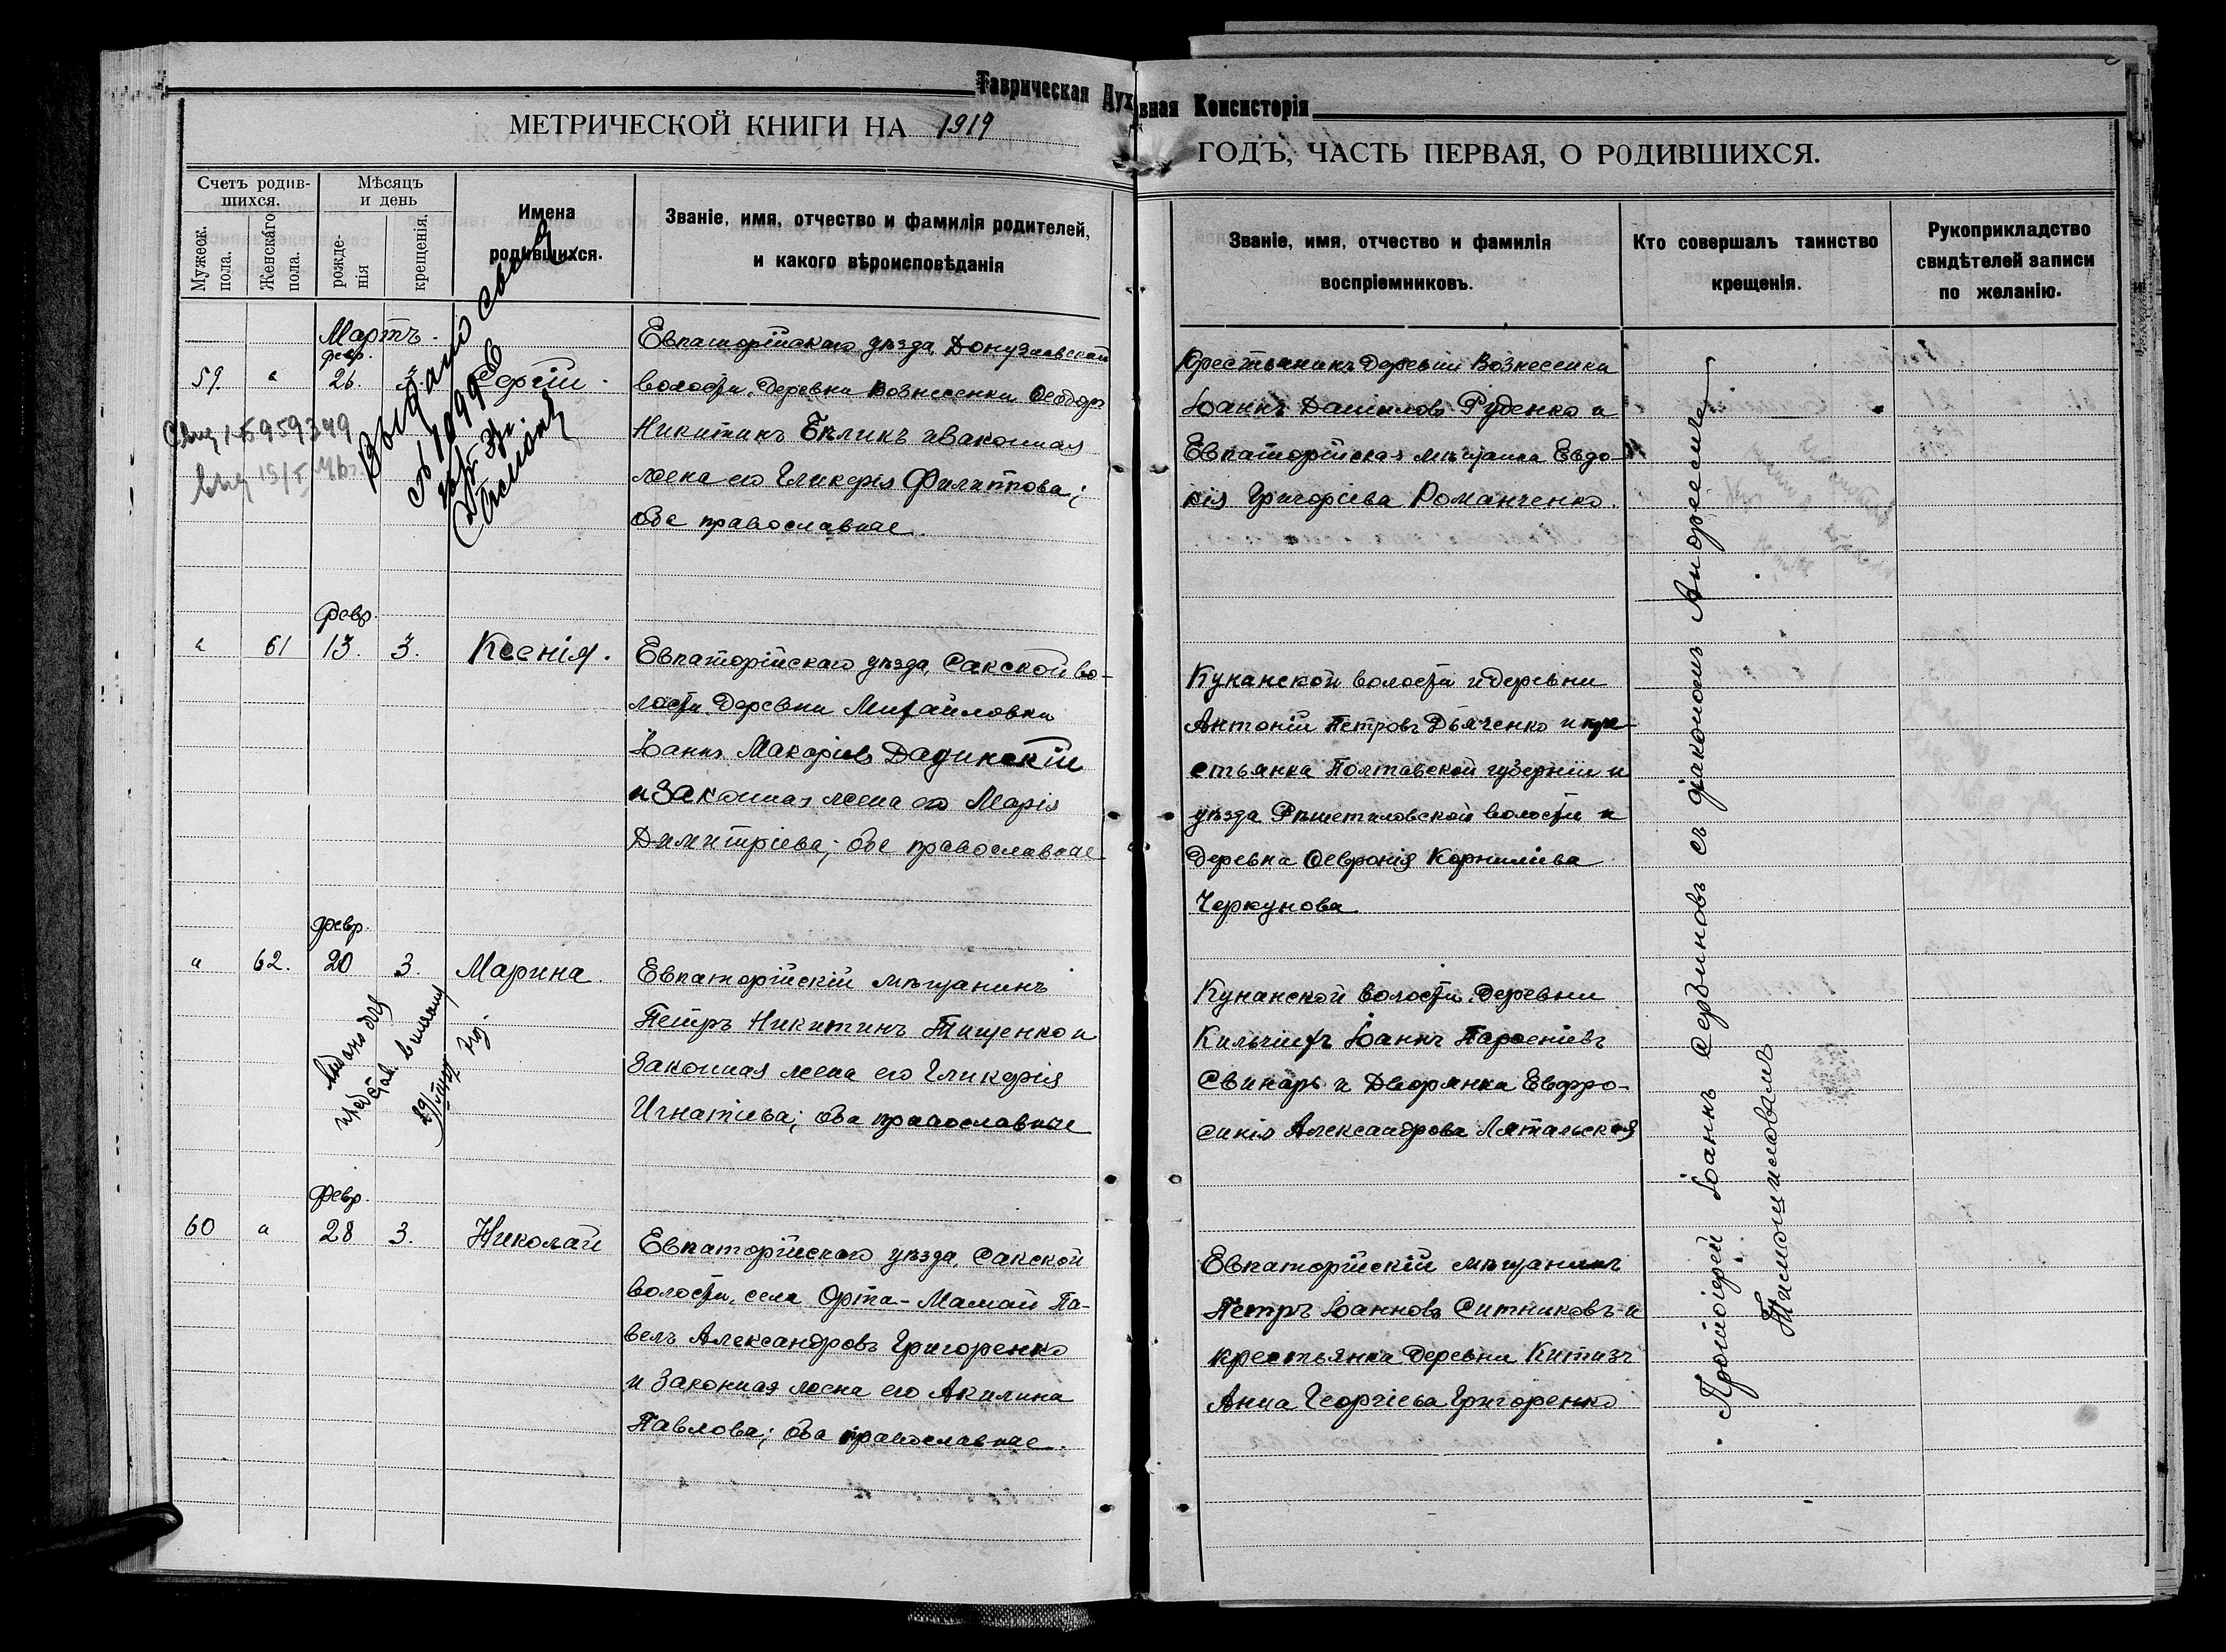 Таврическая Духовная Консисторія
МЕТРИЧЕСКОЙ КНИГИ НА 1919
ГОДЪ, ЧАСТЬ ПЕРВАЯ, О РОДИВШИХСЯ.
Счетъ родив-
шихся.
Мужеск.
пола.
Женскаго
пола.
Мѣсяцъ
и день
рожде-
нія
крещенія.
Имена
родившихся.
Званіе, имя, отчество и фамилія родителей,
и какого вѣроисповѣданія
Званіе, имя, отчество и фамилія
воспріемниковъ.
Кто совершалъ таинство
крещенія.
Рукоприкладство
свидѣтелей записи
по желанію.
Мартъ.
февр.
59 " 26 3. Сергій.
Евпаторійскаго уѣзда, Донузлавской
волости, деревни Вознесенки Ѳеодоръ
Никитинъ Бѣликъ и законная
жена его Гликерія Филиппова;
обе православные.
Крестьянинъ деревни Вознесенки
Іоаннъ Даниловъ Руденко и
Евпаторійская мѣщанка Евдо-
кія Григоріева Романченко.
Выдано
февр.
" 61 13. 3. Ксенія.
Евпаторійскаго уѣзда, Сакской во-
лости, деревни Михайловки
Іоаннъ Макаріевъ Дадинскій
и законная жена его Марія
Димитріева; обе православные
Куканской волости и деревни
Антоній Петровъ Дьяченко и кре-
стьянка Полтавской губерніи и
уѣзда Рѣшетиловской волости и
деревна Ѳевронія Корниліева
Черкунова
февр.
" 62. 20 3. Марина.
Евпаторійскій мѣщанинъ
Петръ Никитинъ Тищенко и
законная жена его Гликерія
Игнатіева; оба православные
Кунанской волости, деревни
Іоаннъ Парѳеніевъ
Свинарь и дворянка Евфро-
синія Александрова
февр.
60 " 28 3. Николай
Евпаторійскаго уѣзда, Сакской
волости, села Орта-Мамай Па-
велъ Александровъ Григоренко
и законная жена его Акилина
Павлова; оба православные.
Евпаторійскій мѣщанинъ
Петръ Іоанновъ Ситниковъ и
крестьянка деревни
Анна Георгіева Григоренко
Протоіерей Іоаннъ Сербиновъ съ діакономъ